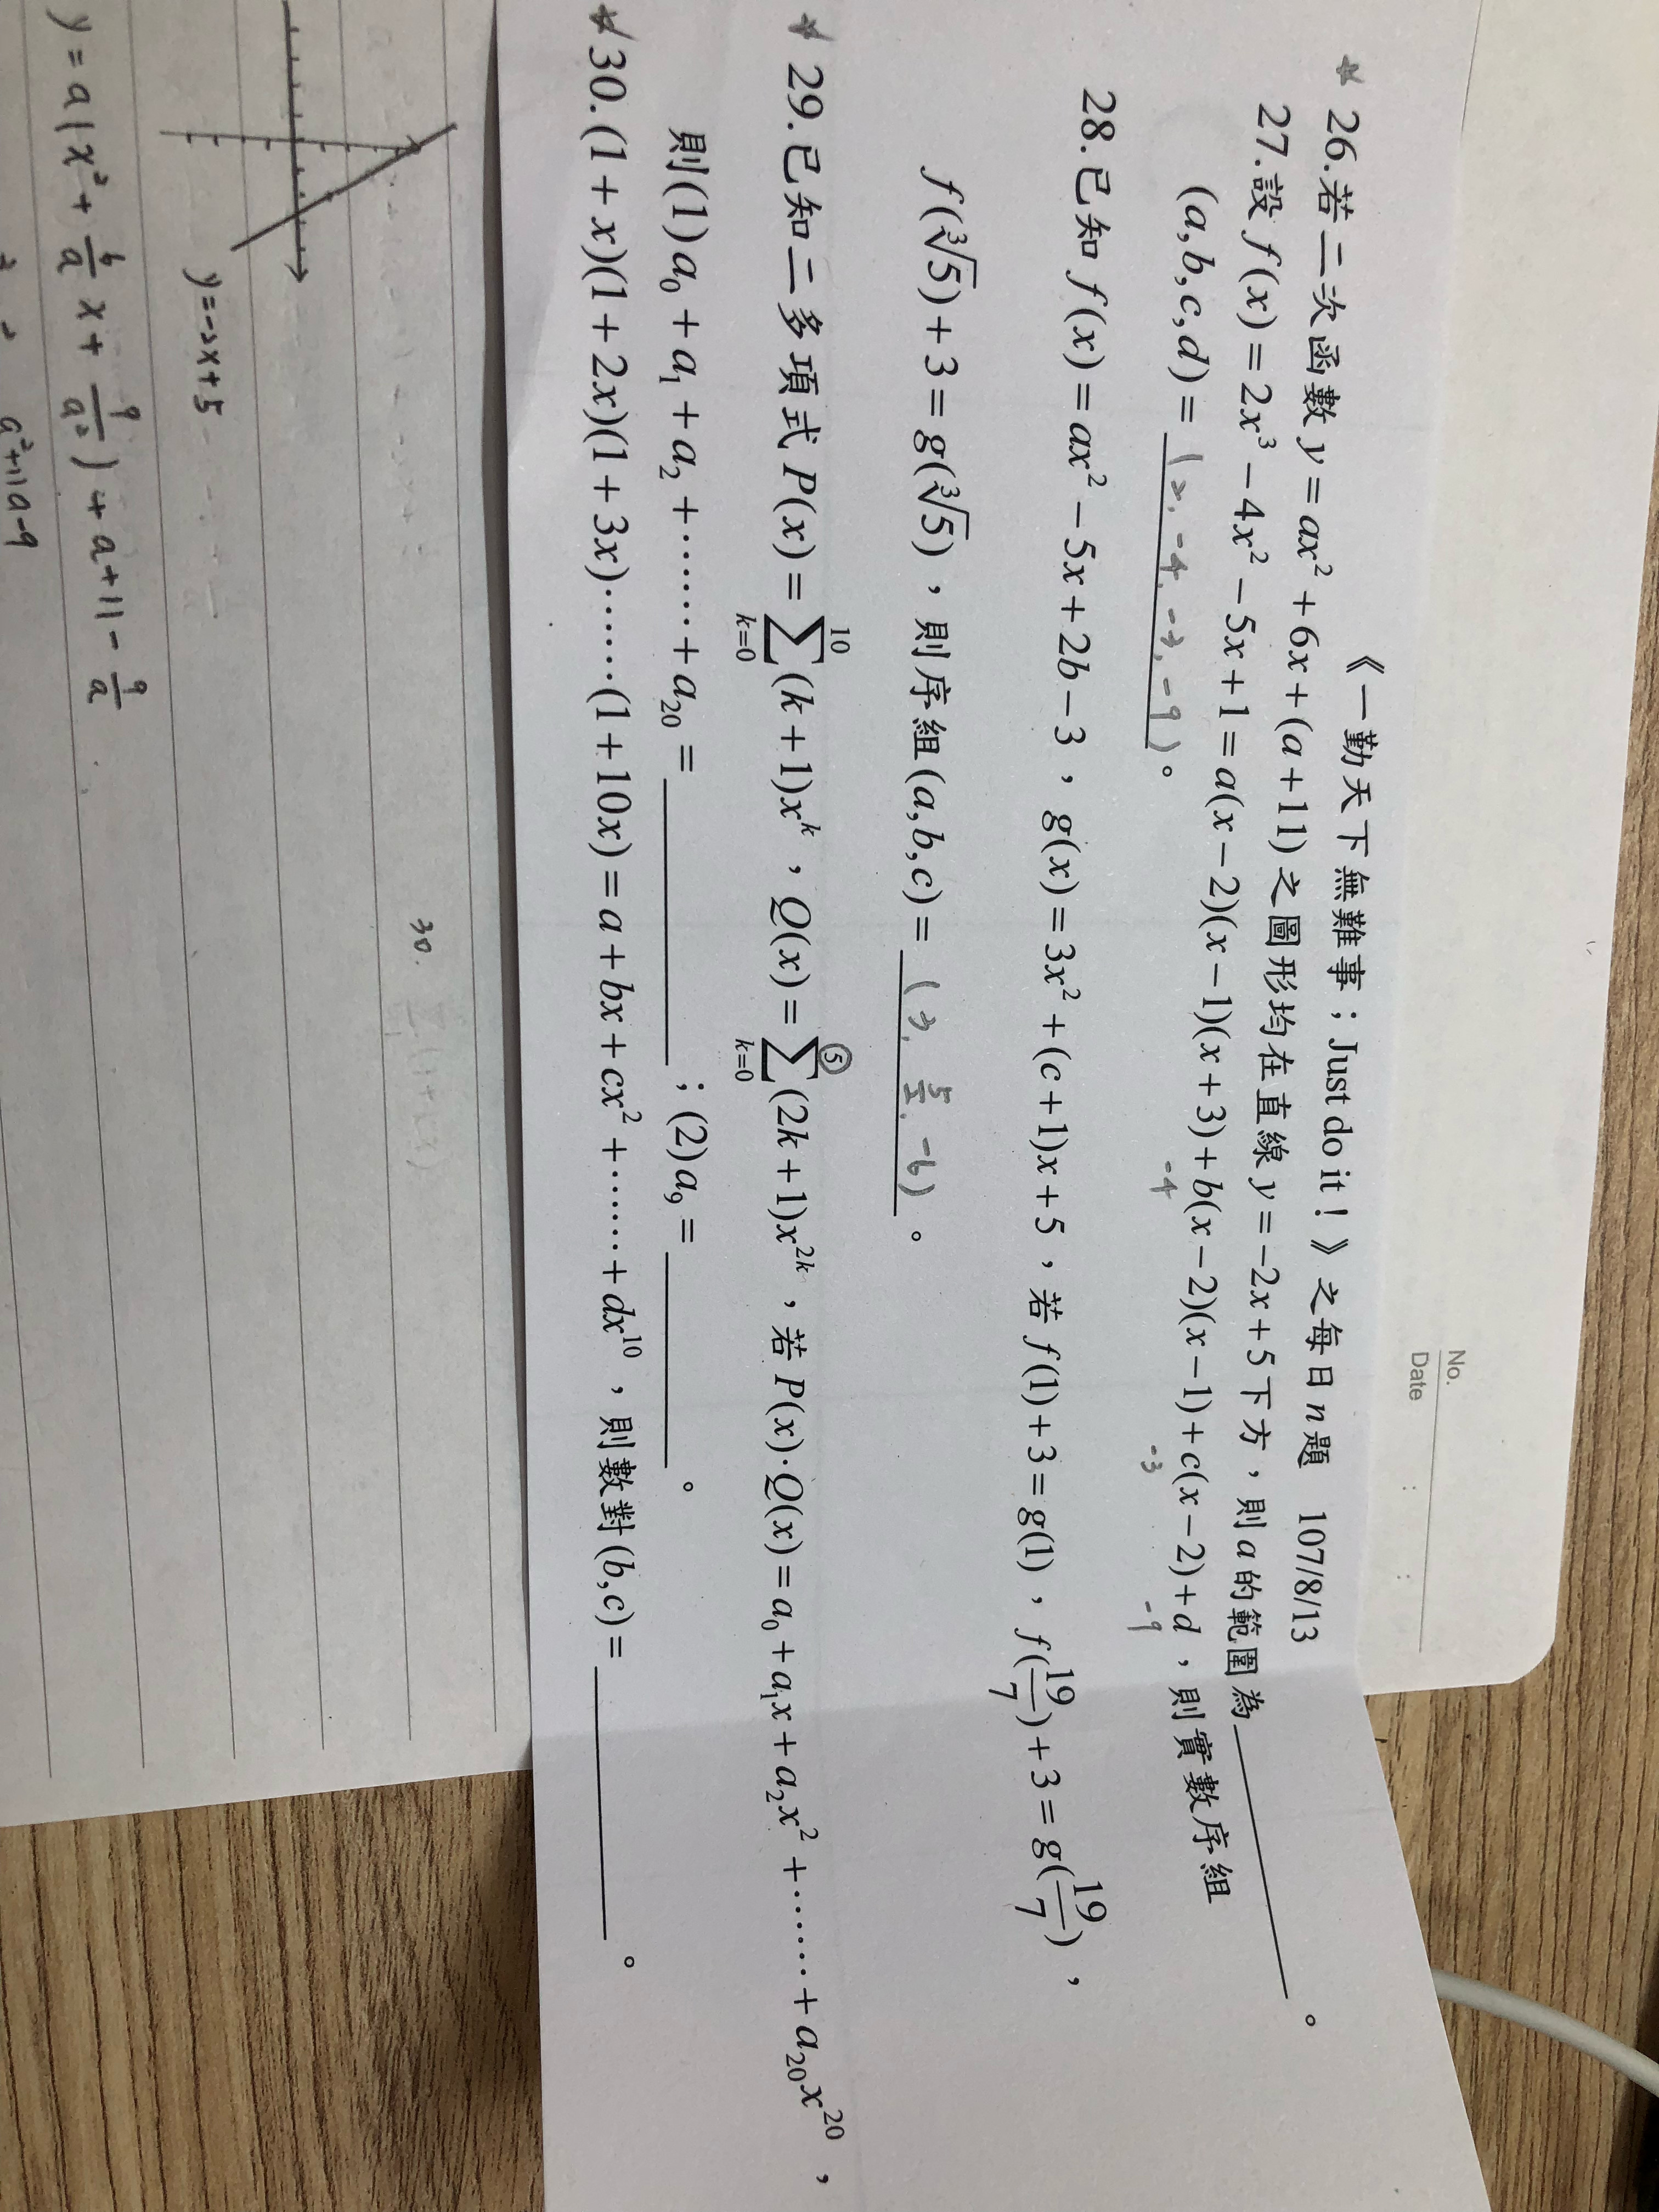 No.
Date : :
《一勤天下無難事；Just do it！》之每日n題 107/8/13
26.若二次函數y=ax²+6x+(a+11)之圖形均在直線y=-2x+5下方，則a的範圍為__________。
27.設f(x)=2x³-4x²-5x+1=a(x-2)(x-1)(x+3)+b(x-2)(x-1)+c(x-2)+d，則實數序組
-4 -3 -9
(a,b,c,d)=(2,-4,-3,-9)。
28.已知f(x)=ax²-5x+2b-3，g(x)=3x²+(c+1)x+5，若f(1)+3=g(1)，f(19/7)+3=g(19/7)，
f(∛5)+3=g(∛5)，則序組(a,b,c)=(3, 5/2, -6)。
29.已知二多項式P(x)=∑_{k=0}^{10}(k+1)x^k，Q(x)=∑_{k=0}^{5}(2k+1)x^{2k}，若P(x)·Q(x)=a₀+a₁x+a₂x²+⋯⋯+a₂₀x²⁰，
則(1)a₀+a₁+a₂+⋯⋯+a₂₀=__________；(2)a₉=__________。
30.(1+x)(1+2x)(1+3x)⋯⋯(1+10x)=a+bx+cx²+⋯⋯+dx¹⁰，則數對(b,c)=__________。
30.
y=-2x+5
y=a(x²+6/a x+9/a²)+a+11-9/a
a²+11a-9